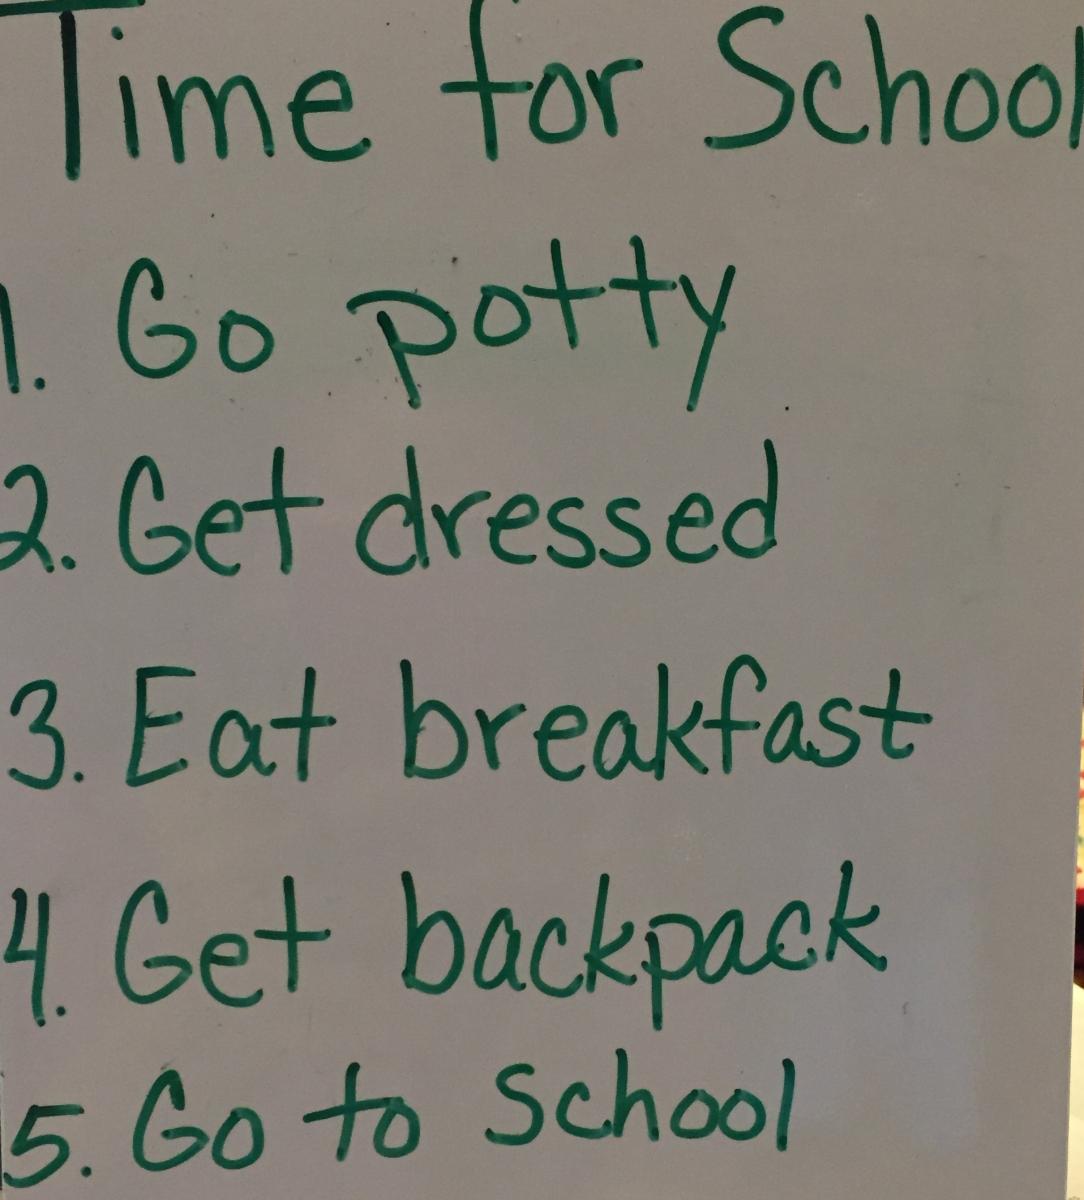 Time for School
1. Go potty
2. Get dressed
3. Eat breakfast
4. Get backpack
5. Go to School